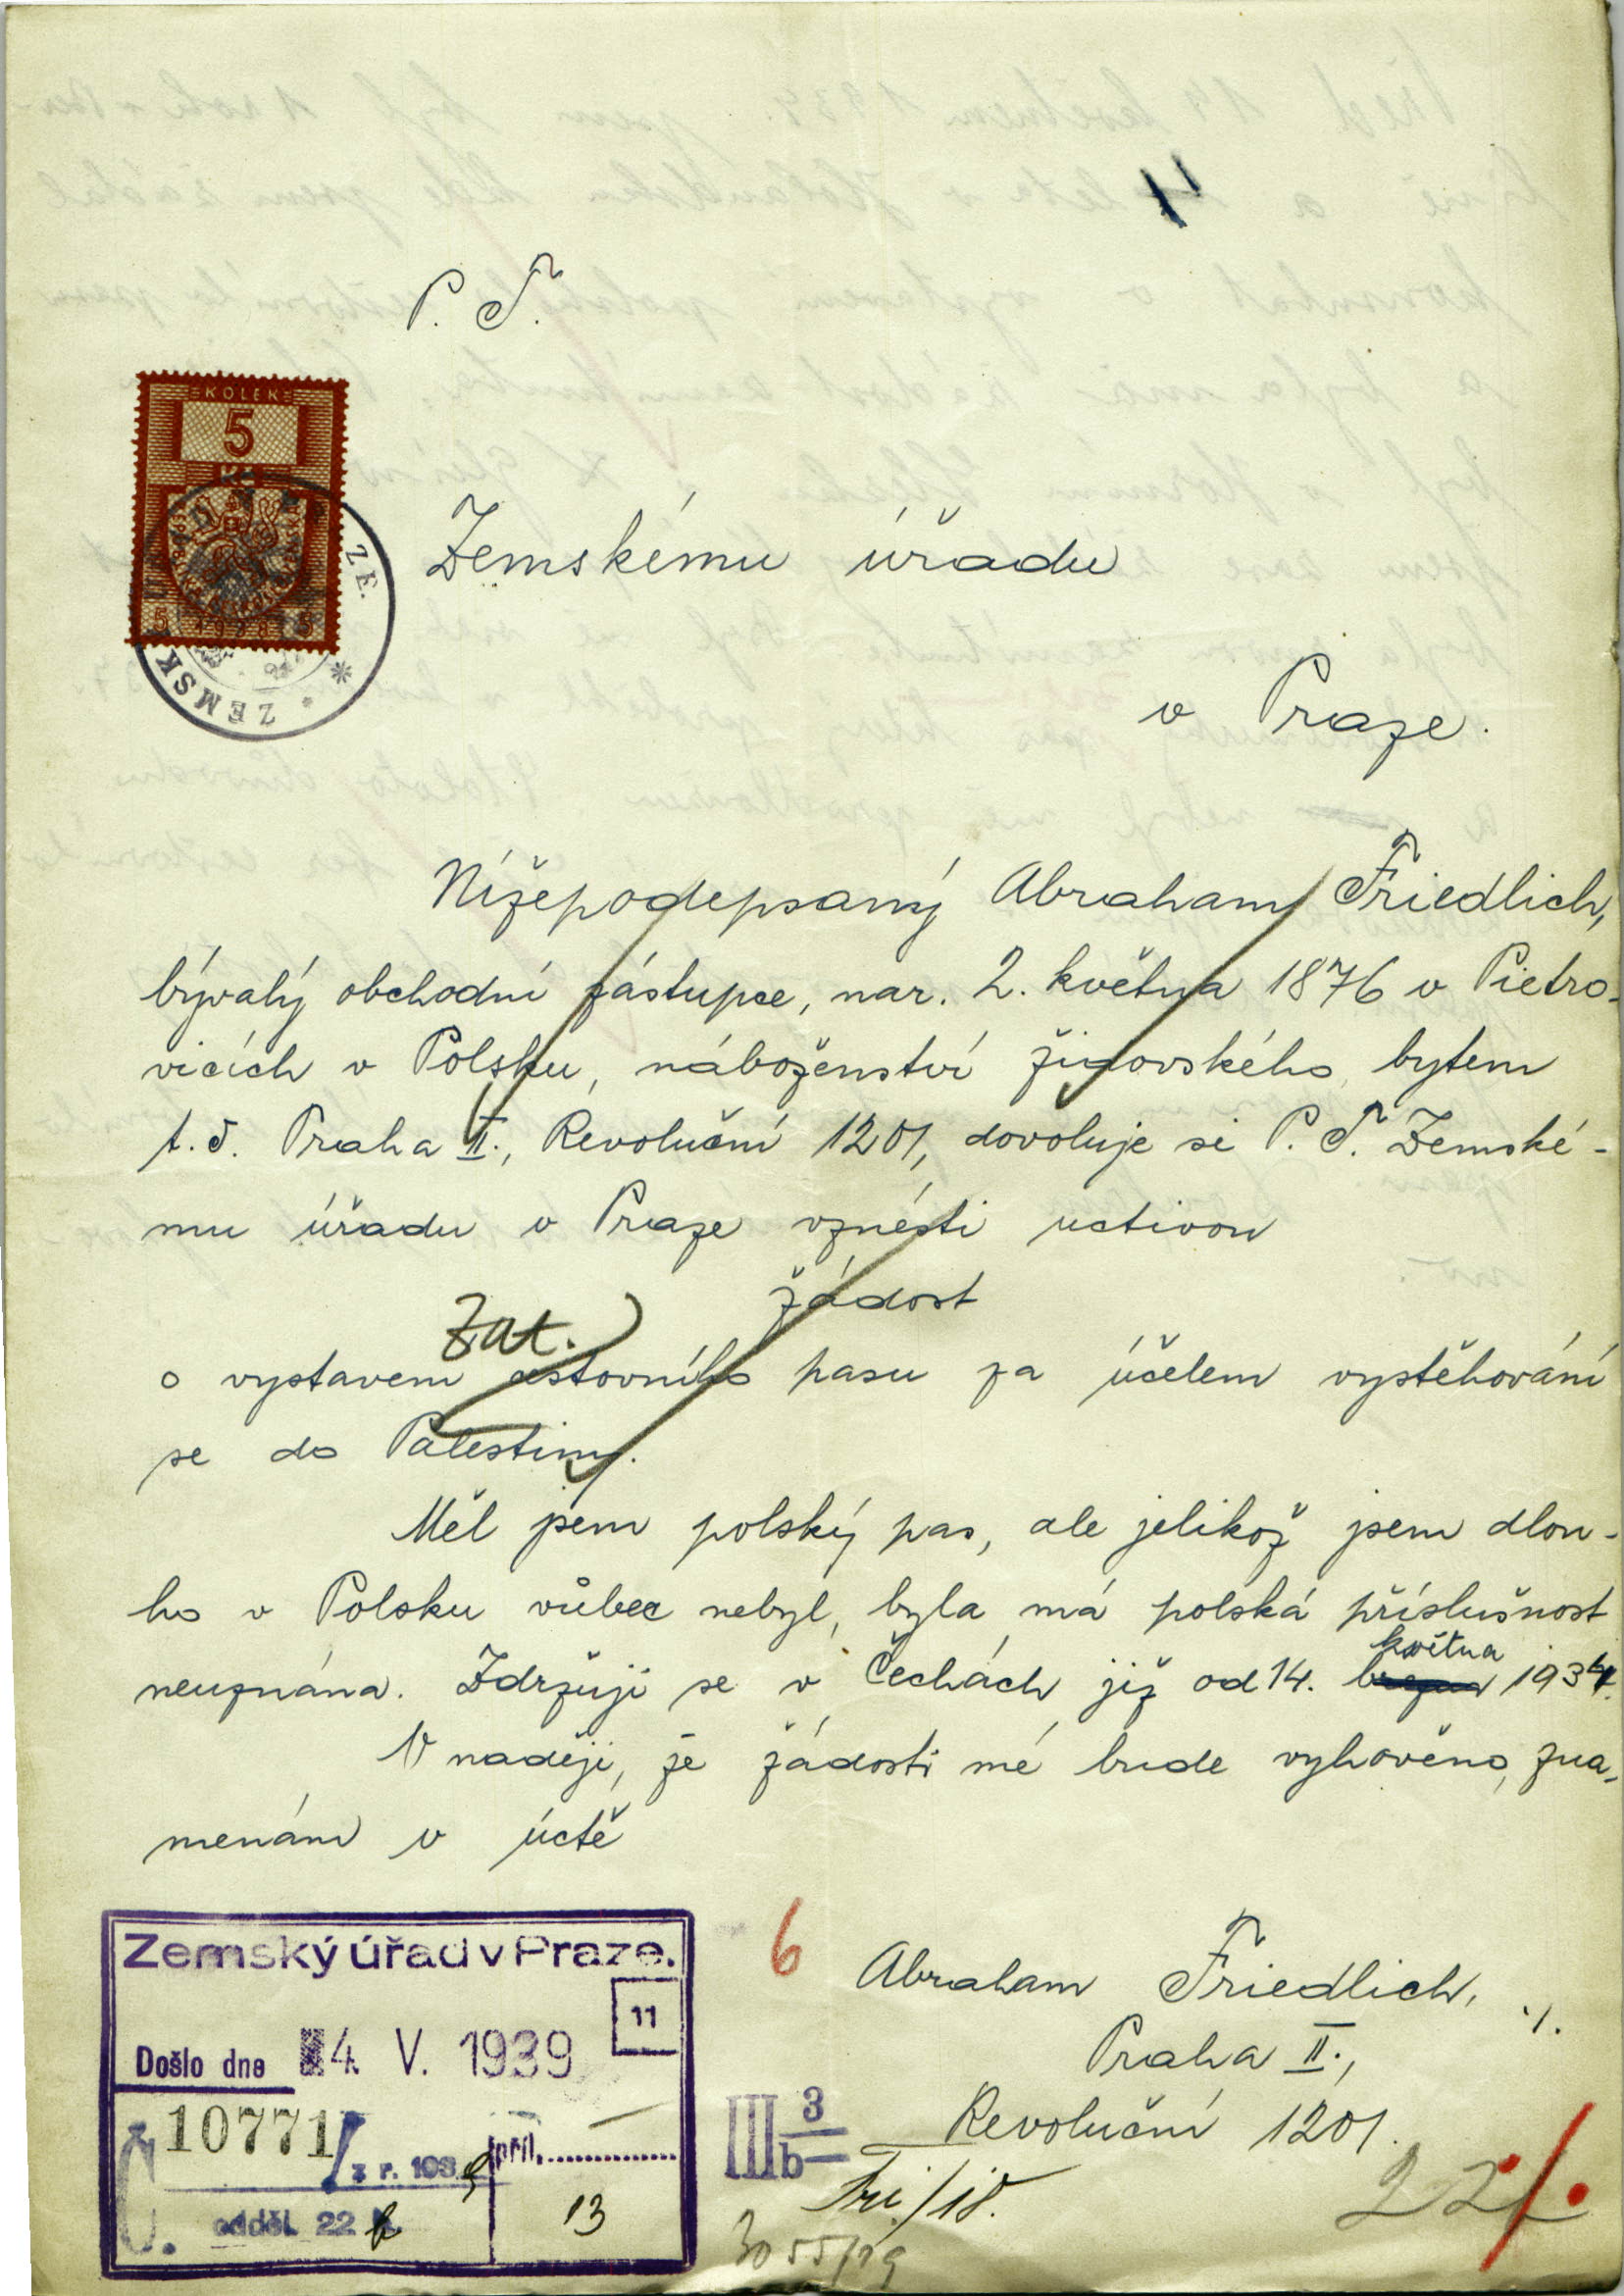 P. T.
KOLEK
5
Kč
5 1938 5
ZEMSK
ZE.
Zemskému úřadu
v Praze.
Nížepodepsaný Abraham Friedlich,
bývalý obchodní zástupce, nar. 2. května 1876 v Pietro-
vicích v Polsku, náboženství židovského, bytem
t. č. Praha II., Revoluční 1201, dovoluje si P. T. Zemské-
mu úřadu v Praze vznésti uctivou
žádost
Zat.
o vystavení cestovního pasu za účelem vystěhování
se do Palestiny.
Měl jsem polský pas, ale jelikož jsem dlou-
ho v Polsku vůbec nebyl, byla má polská příslušnost
května
neuznána. Zdržuji se v Čechách již od 14. března 1934.
V naději, že žádosti mé bude vyhověno, zna-
menám v úctě
6
Abraham Friedlich,
Praha II.,
Revoluční 1201.
./.
Zemský úřad v Praze.
11
Došlo dne 4 V. 1939
Č. 10771/ z r. 1939
příl.
odděl. 22 b
13
III 3
b
22/.